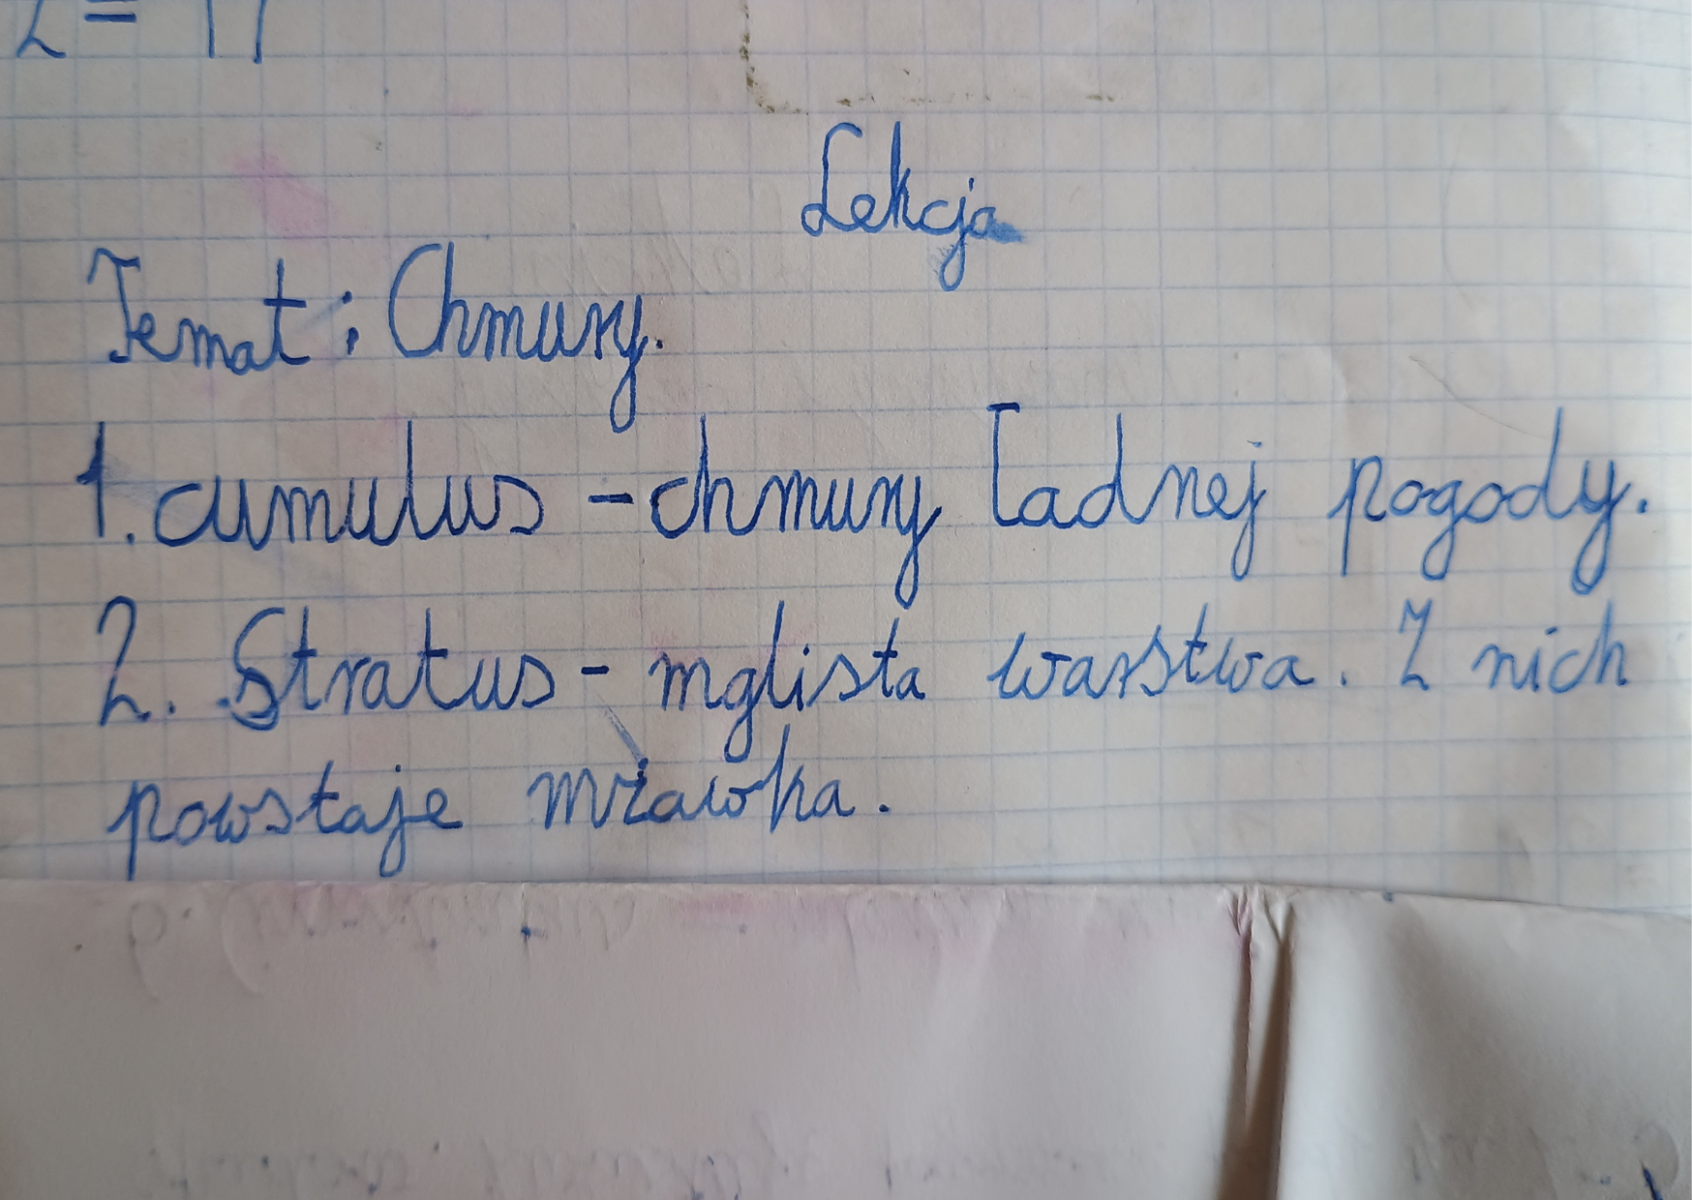 2 = 17
Lekcja
Temat: Chmury.
1. cumulus - chmury ładnej pogody.
2. Stratus - mglista warstwa. Z nich
powstaje mżawka.